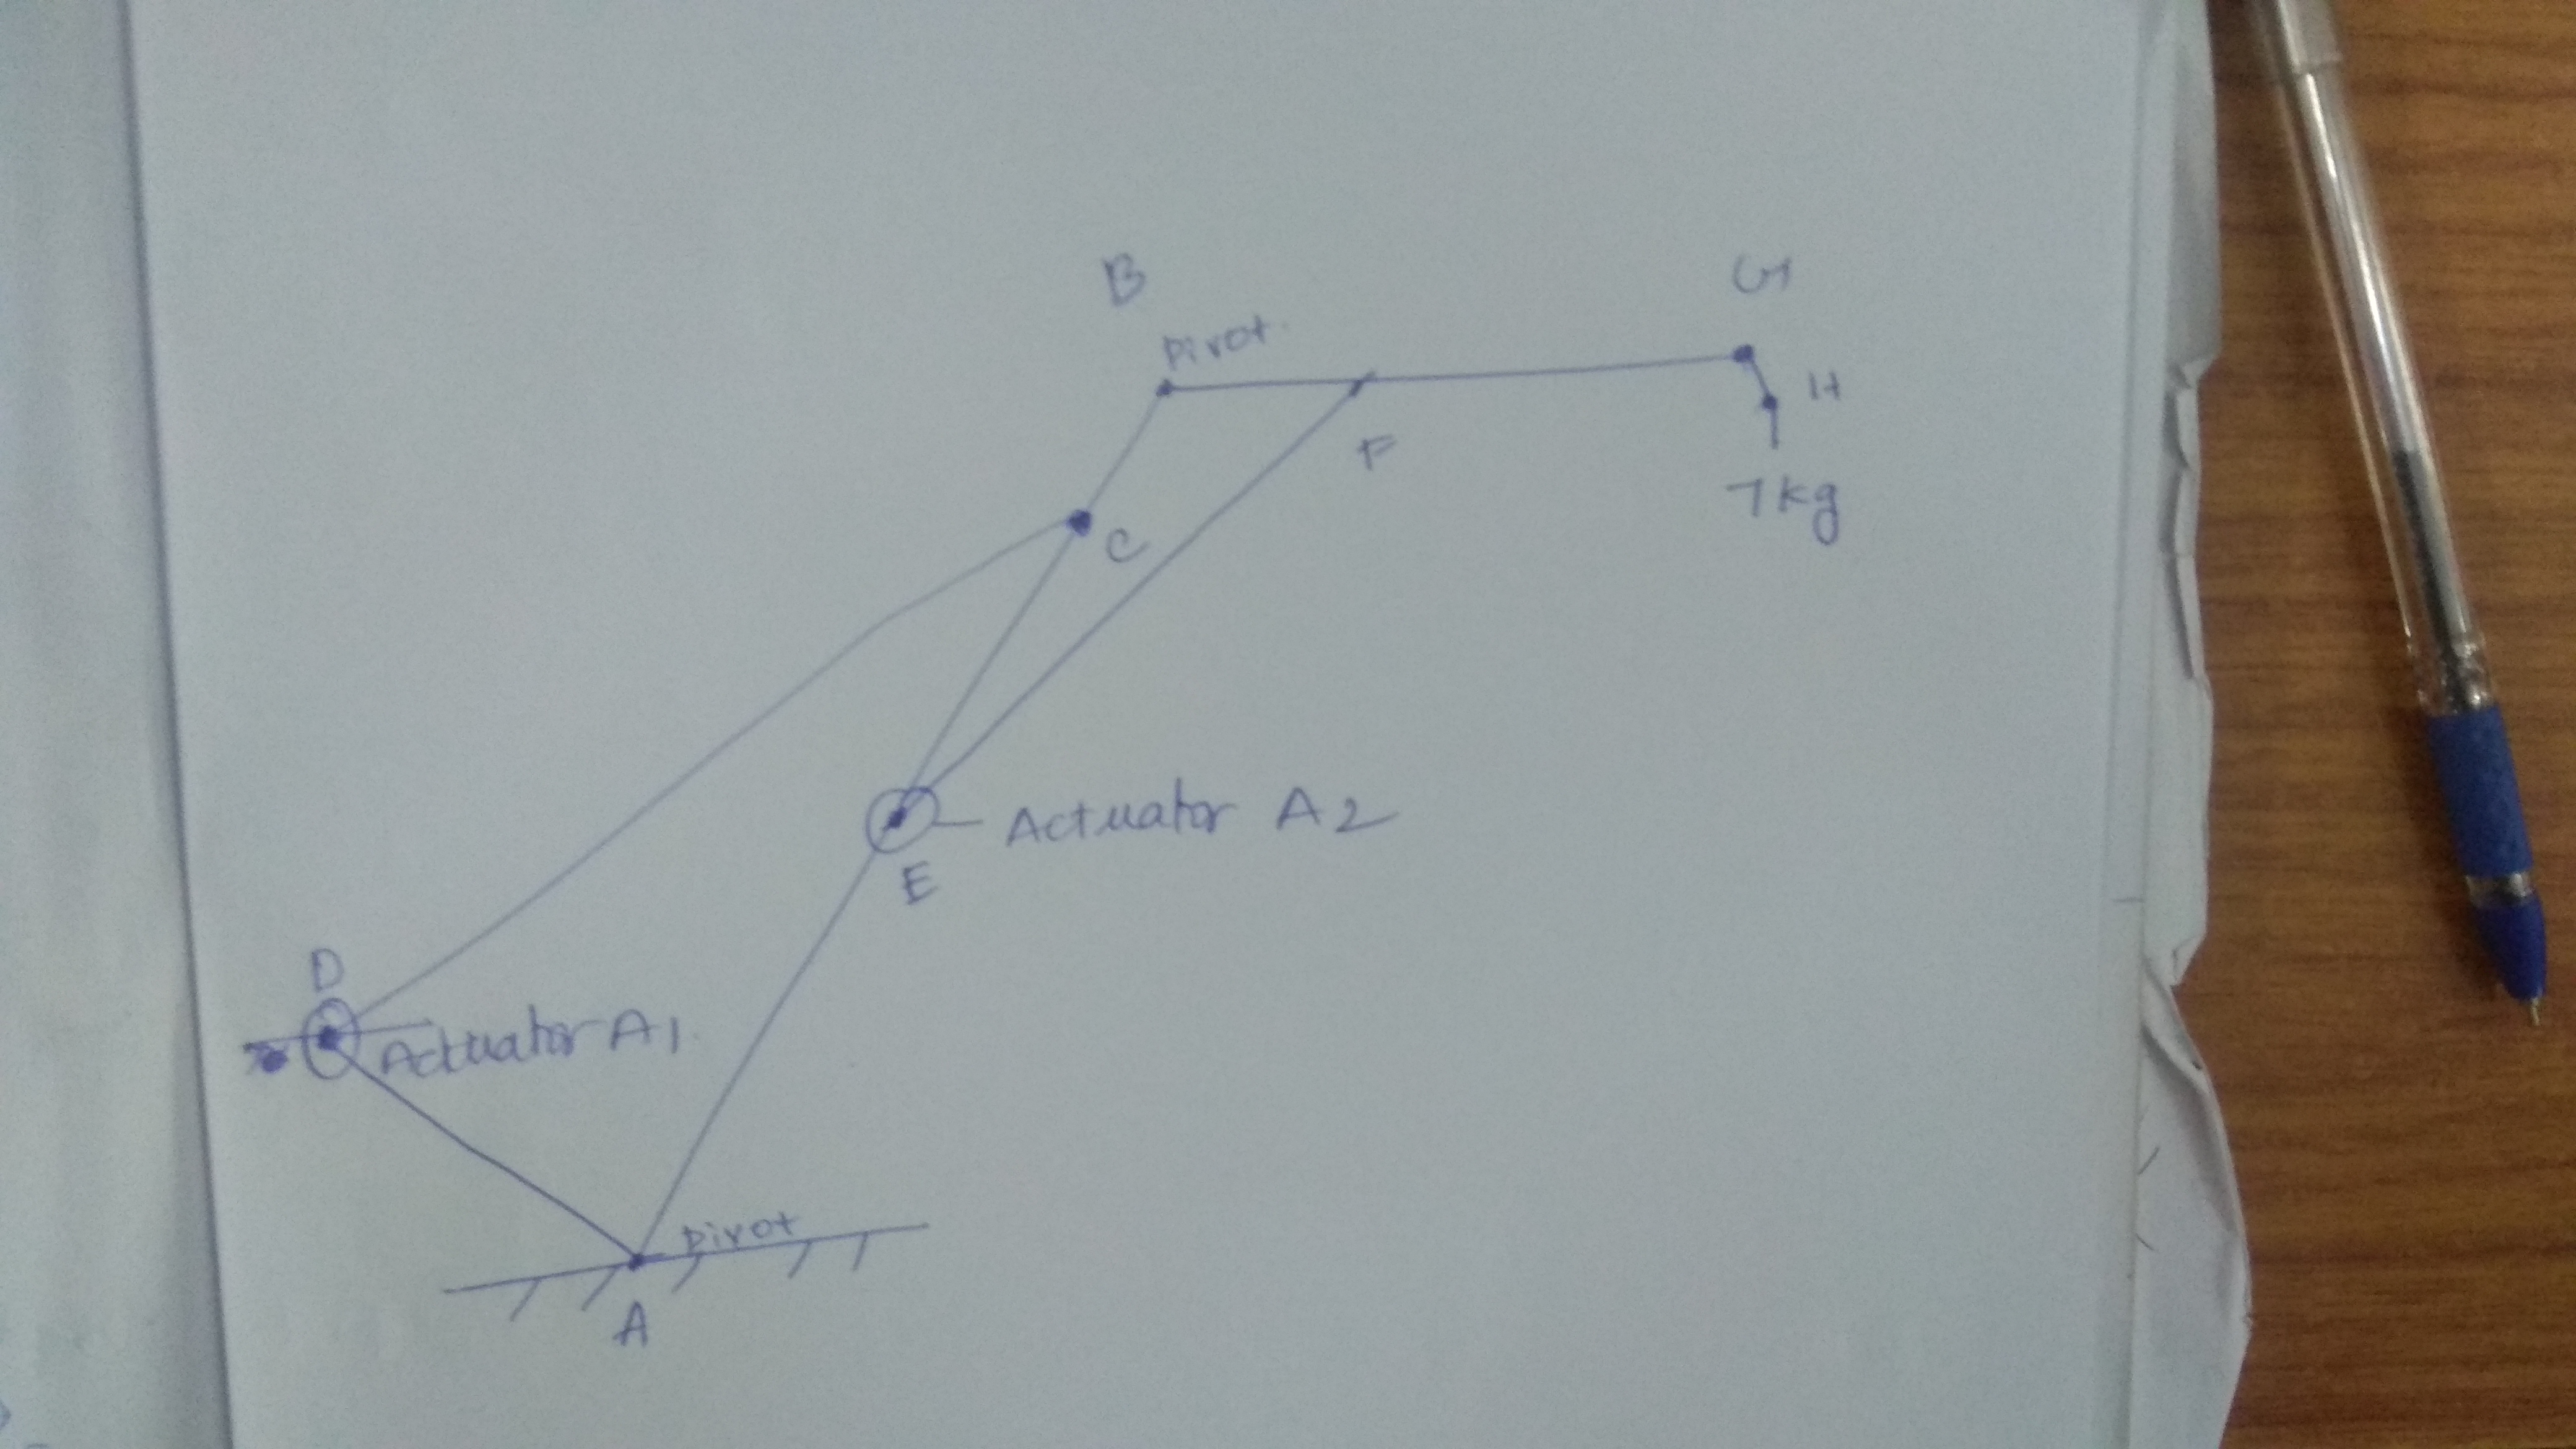 B
G
Pivot
H
F
7kg
C
Actuator A2
E
D
Actuator A1
Pivot
A